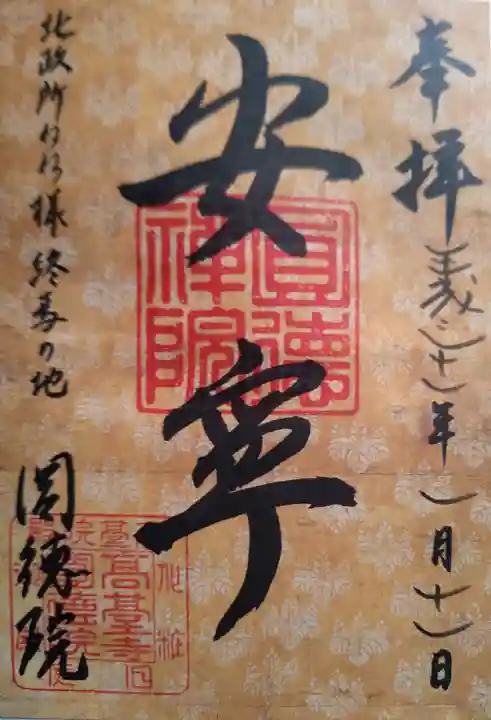 奉拝 平成三十一年一月十一日
安寧
圓德
禪院
北政所ねね様終焉の地
圓徳院
高臺寺